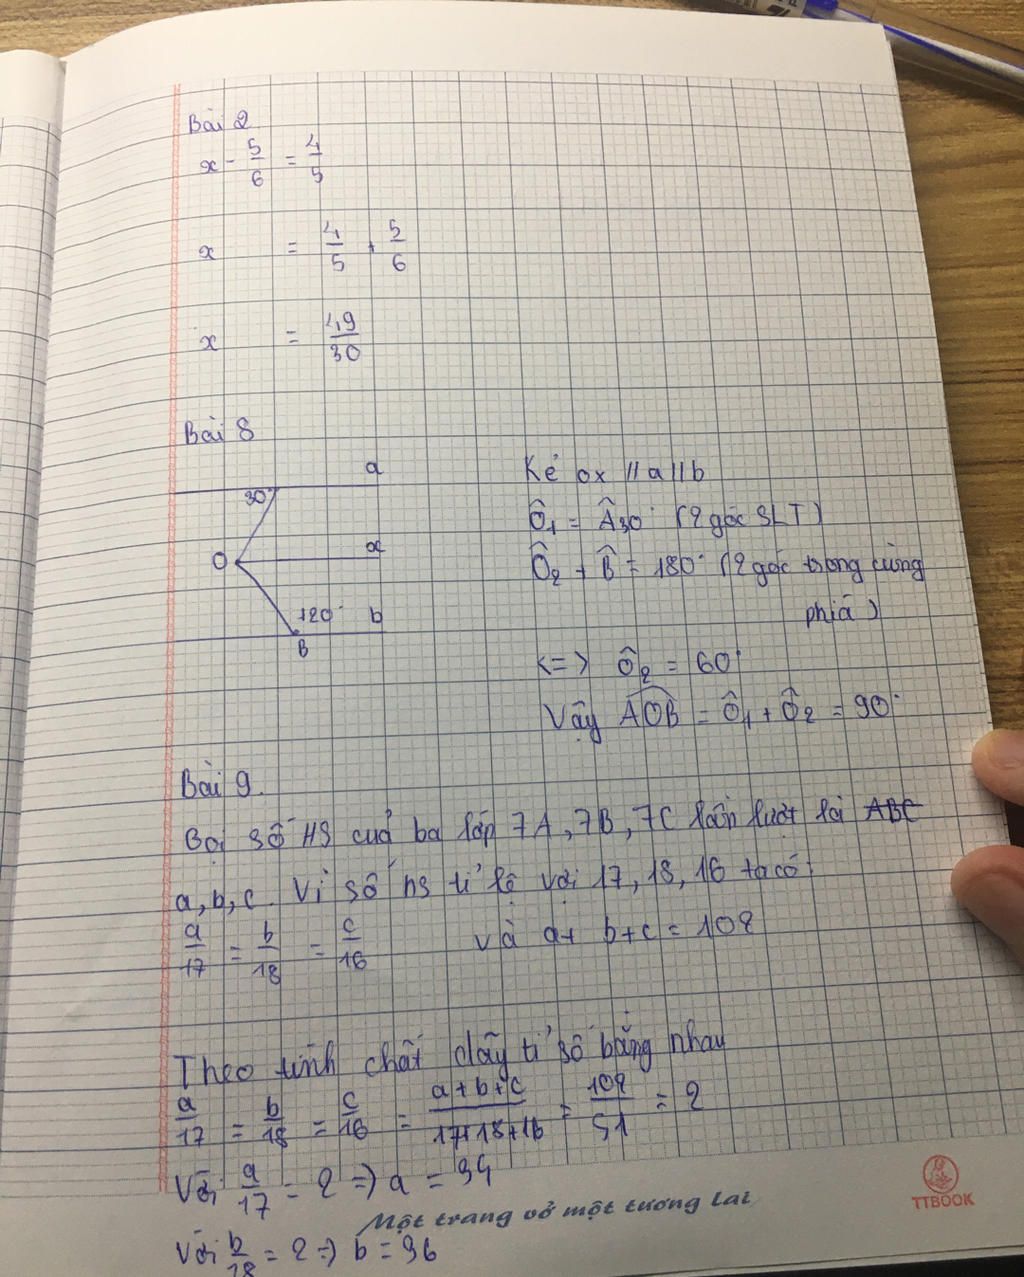 Bài 2
x - 5/6 = 4/5
x = 4/5 + 5/6
x = 49/30
Bài 8
a
30°
O
x
120°
b
B
Kẻ ox // a // b
Ô1 = Â30° (2 góc SLT)
Ô2 + B̂ = 180° (2 góc trong cùng
phía)
<=> Ô2 = 60°
Vậy AOB = Ô1 + Ô2 = 90°
Bài 9.
Gọi số HS của ba lớp 7A, 7B, 7C lần lượt là ABC
a, b, c. Vì số hs tỉ lệ với 17, 18, 16 ta có:
a/17 = b/18 = c/16 và a + b + c = 102
Theo tính chất dãy tỉ số bằng nhau
a/17 = b/18 = c/16 = a+b+c/17+18+16 = 102/51 = 2
Với a/17 = 2 => a = 34
Với b/18 = 2 => b = 36
Một trang vở một tương lai
TTBOOK